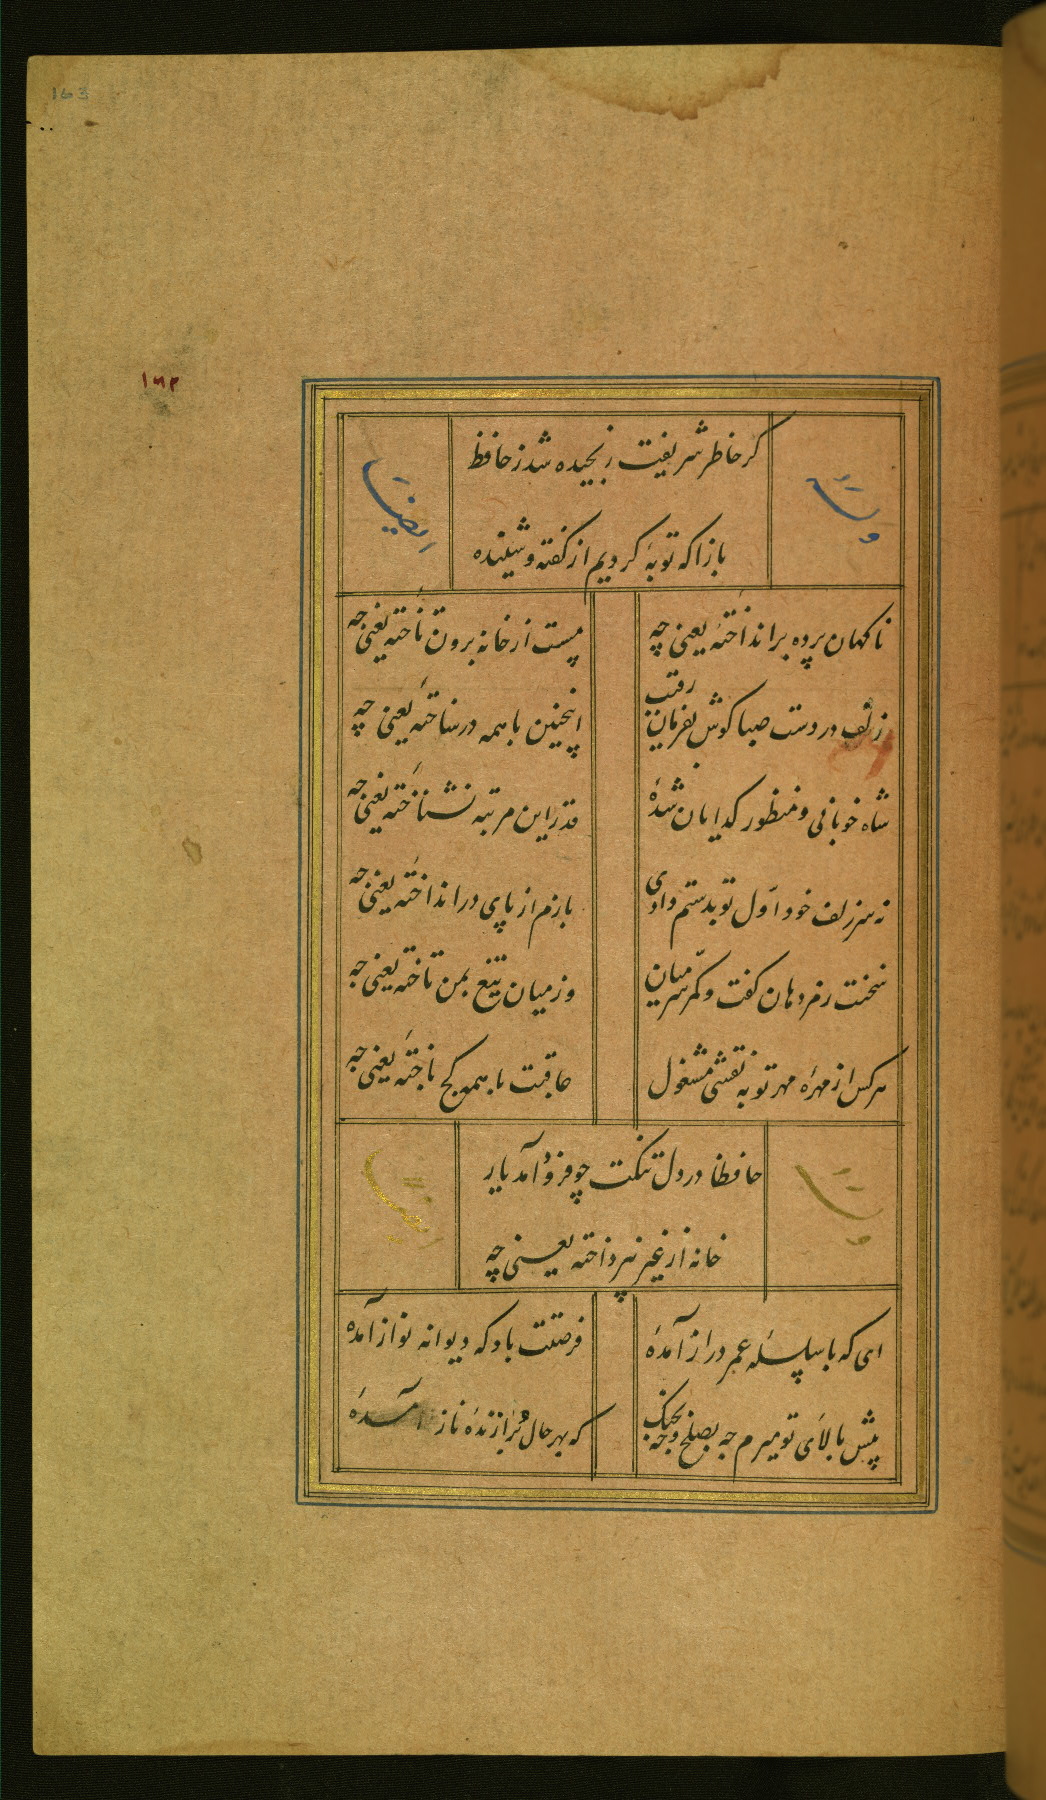 163
۱۶۲
گر خاطر شریفت رنجیده شد ز حافظ
وله
ایضا
بازا که توبهٔ کردیم از گفته و شنیده
ناکهان پرده برانداختهٔ یعنی چه
مست از خانه برون تاختهٔ یعنی چه
زلف در دست صبا کوش بفرمان رقیب
اینچنین با همه درساختهٔ یعنی چه
شاه خوبانی و منظور کدایان شدهٔ
قدر این مرتبه نشناختهٔ یعنی چه
نه سر زلف خود اول تو بدستم دادی
بازم از پای درانداختهٔ یعنی چه
سخنت رمز دهان کفت و کمر سر میان
وز میان تیغ بمن تاختهٔ یعنی چه
هر کس از مهرهٔ مهر تو به نقشی مشغول
عاقبت با همه کج باختهٔ یعنی چه
حافظا در دل تنکت چو فرود آمد یار
خانه از غیر نپرداختهٔ یعنی چه
ای که با سلسلهٔ عمر دراز آمدهٔ
فرصتت باد که دیوانه نواز آمدهٔ
پیش بالای تو میرم چه بصلح و چه بجنک
که بهر حال برازندهٔ ناز آمدهٔ